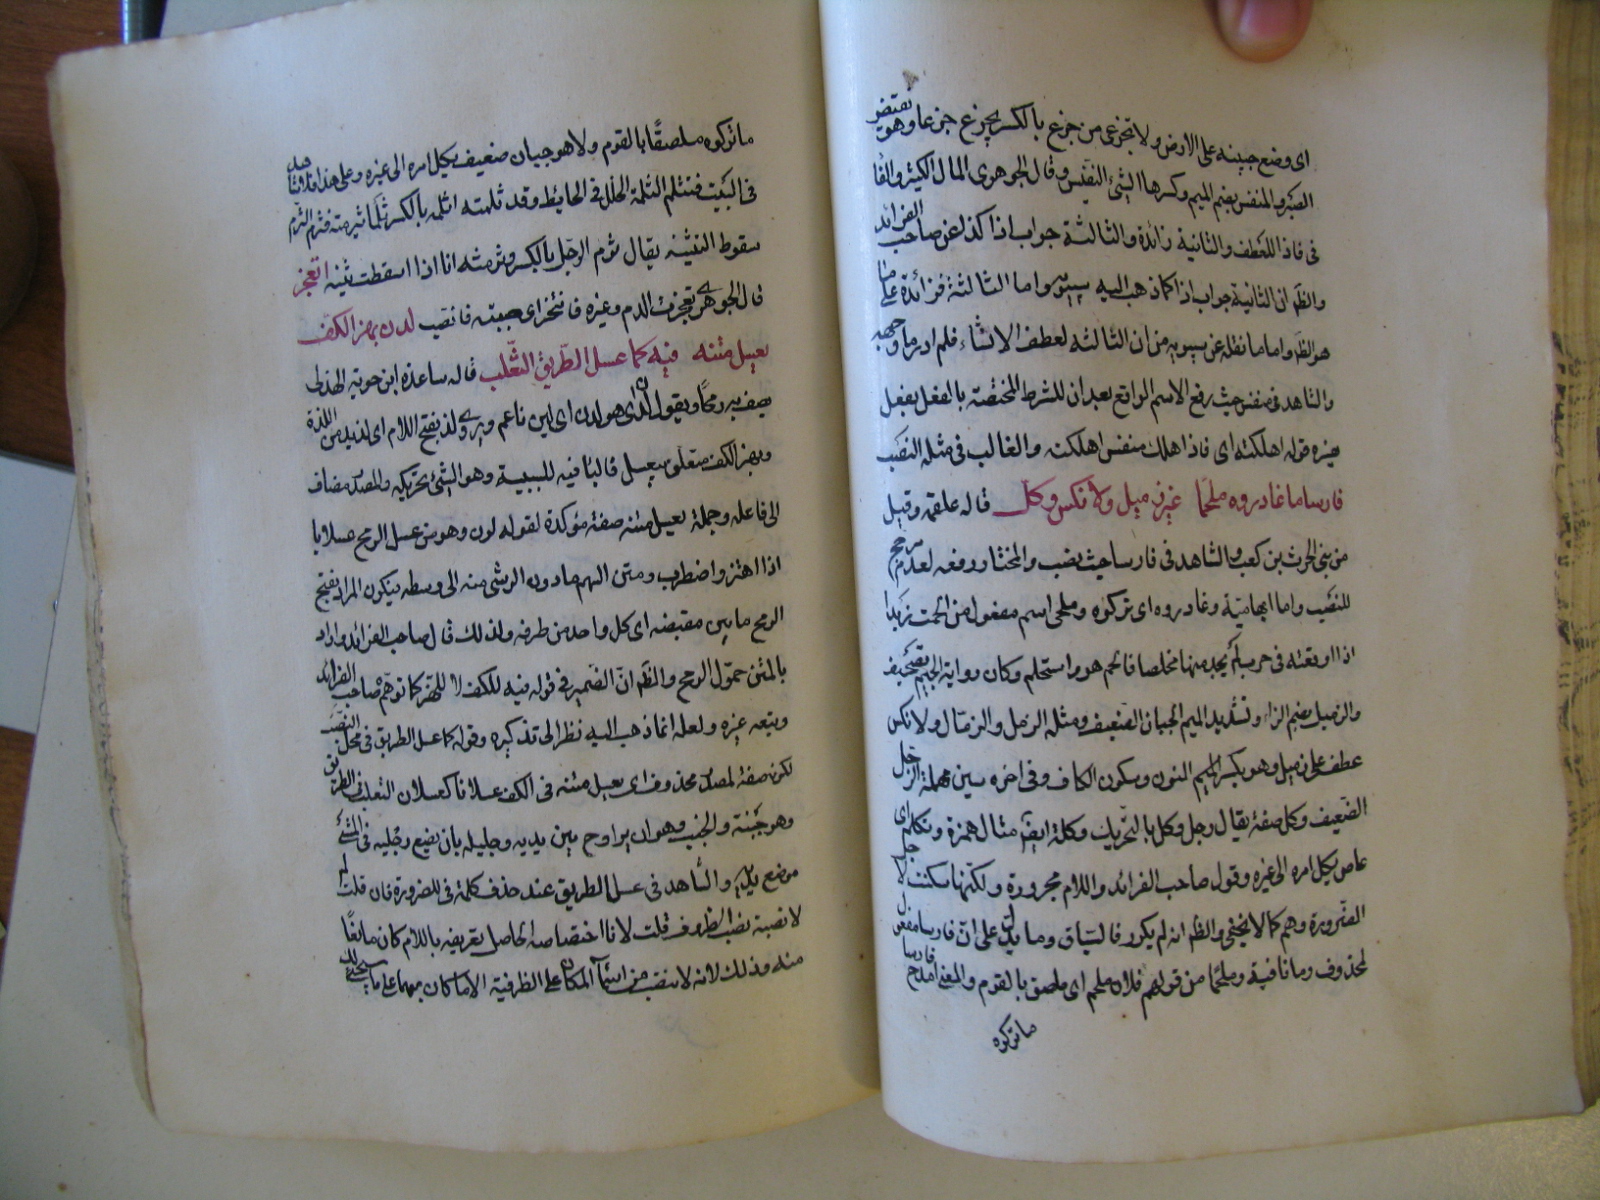 اى وضع جبينه على الارض ولا تجزعى من جزع بالكسر يجزع جزعا وهو نقيض
الصبر والمنفس بضم الميم وكسرها الشئ النفيس وقال الجوهرى المال الكثير والفا
فى فاذا للعطف والثانية زائدة والثالثة جواب اذا كذا عن صاحب الفرائد
والظ ان الثانية جواب اذا كما ذهب اليه سيبويه واما الثالثة فزائدة على ما
هو الظ واما ما نقله عن سيبويه من ان الثالثه لعطف الانشاء فلم ادر ما وجهه
والشاهد فى منفس حيث رفع الاسم الواقع بعد ان للشرط المختصة بالفعل بفعل
قوله اهلكته اى فاذا هلك منفس اهلكته والغالب فى مثله النصب
فارسا ما غادروه ملحما غير زميل ولا نكس وكل قاله علقمه وقيل
من بنى الحرث بن كعب والشاهد فى فارسا حيث نصب والمختار رفعه لعدم مرجح
للنصب واما ابهامية وغادروه اى تركوه وملحما اسم مفعول من الحمت زيدا
اذا اوقعته فى حرب لم يجد منها مخلصا فالحم هو واستلحم وكان رواية الجيم تصحيف
والزميل بضم الزاء وتشديد الميم الجبان الضعيف ومثله الزمل والزمال ولا نكس
عطف على زميل وهو بكسر الميم النون وسكون الكاف وفى اخره سين مهملة الرجل
الضعيف وكل صفة يقال رجل وكل بالتحريك وكلة ايضا مثال همزة وتكلة اى
عاجز يكل امره الى غيره وقول صاحب الفرائد واللام مجرورة ولكنها سكنت لاجل
الضرورة وهم كما لا يخفى والظ انه لم يكرر فا لسياق وما يدل على ان فارسا مفعول
لمحذوف وما نافية وملحما من قولهم فلان ملحم اى ملصق بالقوم والمعنى امدح فارسا
ما تركوه
ما تركوه ملصقا بالقوم ولا هو جبان ضعيف يكل امره الى غيره وعلى هذا
فى البيت فتثلم الثلمة الخلل فى الحايط وقد ثلمته اثلمه بالكسر ثلما ثرمته فثرم الثرم
سقوط الثنيه يقال ثرم الرجل بالكسر وثرمته انا اذا اسقطت ثنيه
قال الجوهرى الدم وغيره فانثجر اى صببته فانصب لدن بهز الكف
يعسل متنه فيه كما عسل الطريق الثعلب قاله ساعدة ابن جوية الهذلى
يصف به رمحا ويقول الذى هو لدن اى لين ناعم ويروى لذ بفتح اللام اى لذيذ من اللذة
وبهز الكف متعلق بيعسل فالبا فيه للسببية وهو الشئ تحريكه والمصدر مضاف
الى فاعله وجملة يعسل متنه صفة مؤكدة لقوله لدن وهو من عسل الرمح عسلانا
اذا اهتز واضطرب ومتن السهم ما دون الريش منه الى وسطه فيكون المراد بمتن
الرمح ما بين مقبضه اى كل واحد من طرفه ولذلك قال صاحب الفرائد واراد
بالمتن الرمح والظ ان الضمير فى قوله فيه للكف لا للهز كما توهم صاحب الفرائد
وتبعه غيره ولعله انما ذهب اليه نظرا الى تذكيره وقوله كما عسل الطريق فى محل النصب
لكونه صفة لمصدر محذوف اى يعسل متنه فى الكف عسلانا كعسلان الثعلب فى الطريق
وهو والخبب وهو ان يراوح بين يديه ورجليه بان يضع رجليه فى المشى
موضع يديه والشاهد فى عسل الطريق عند حذف كلمة فى للضرورة فان قلت لم
لا نصبه نصب الظروف قلت لان اختصاصه الحاصل بتعريفه باللام كان مانعا
منه وذلك لانه لا ينتصب من اسماء المكان على الظرفية الا ما كان مبهما على ما سيجئ